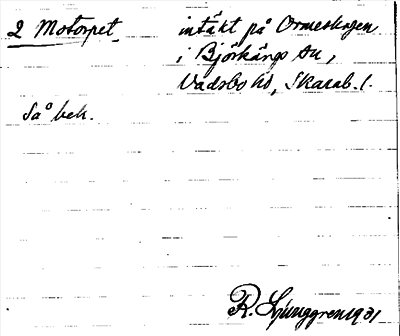 2 Motorpet intäkt på Ormeskogen
i Björkängs sn,
Vadsbo hd, Skarab. l.
Så bek.
R. Ljunggren 1931